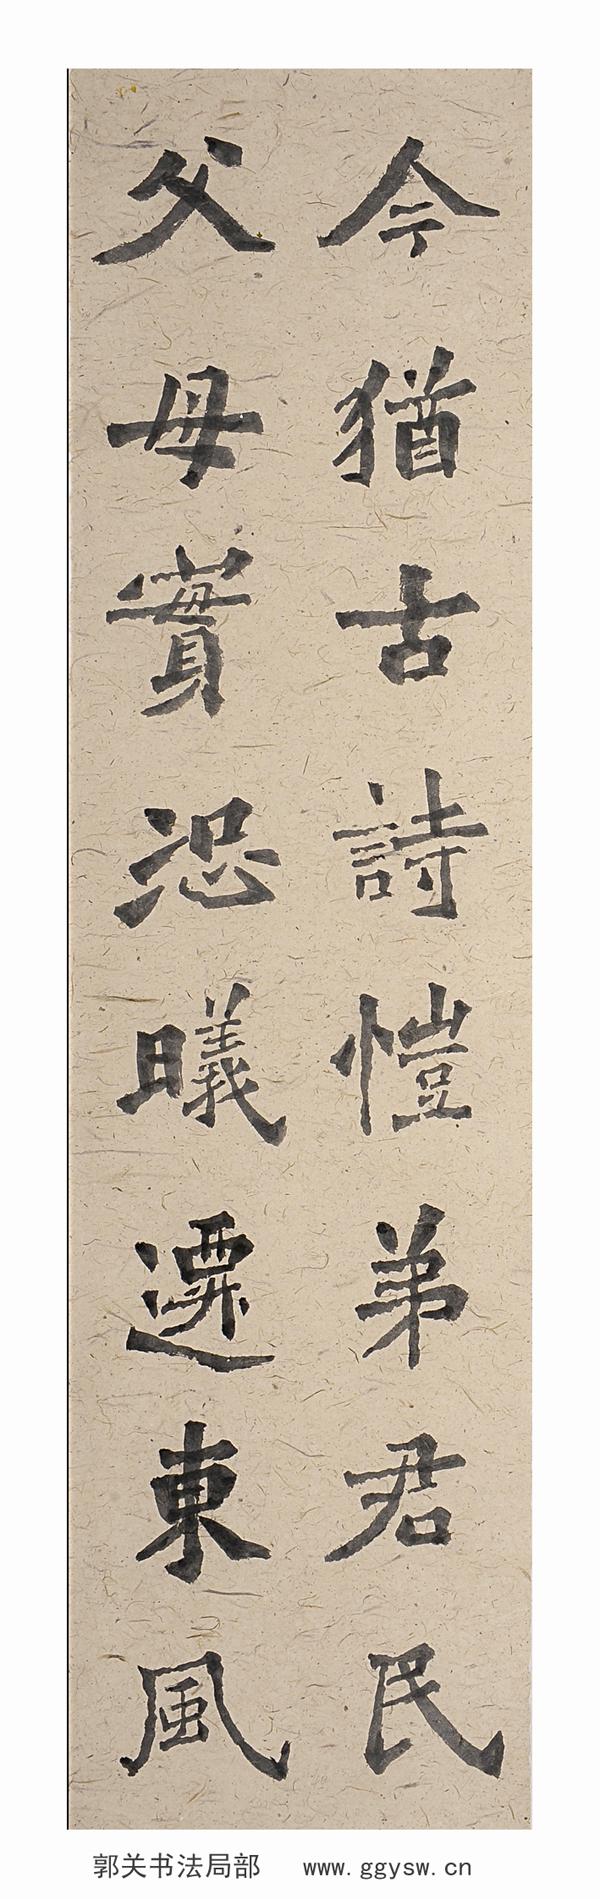 今猶古詩愷弟君民
父母實恐曦遷東風
郭关书法局部 www.ggysw.cn